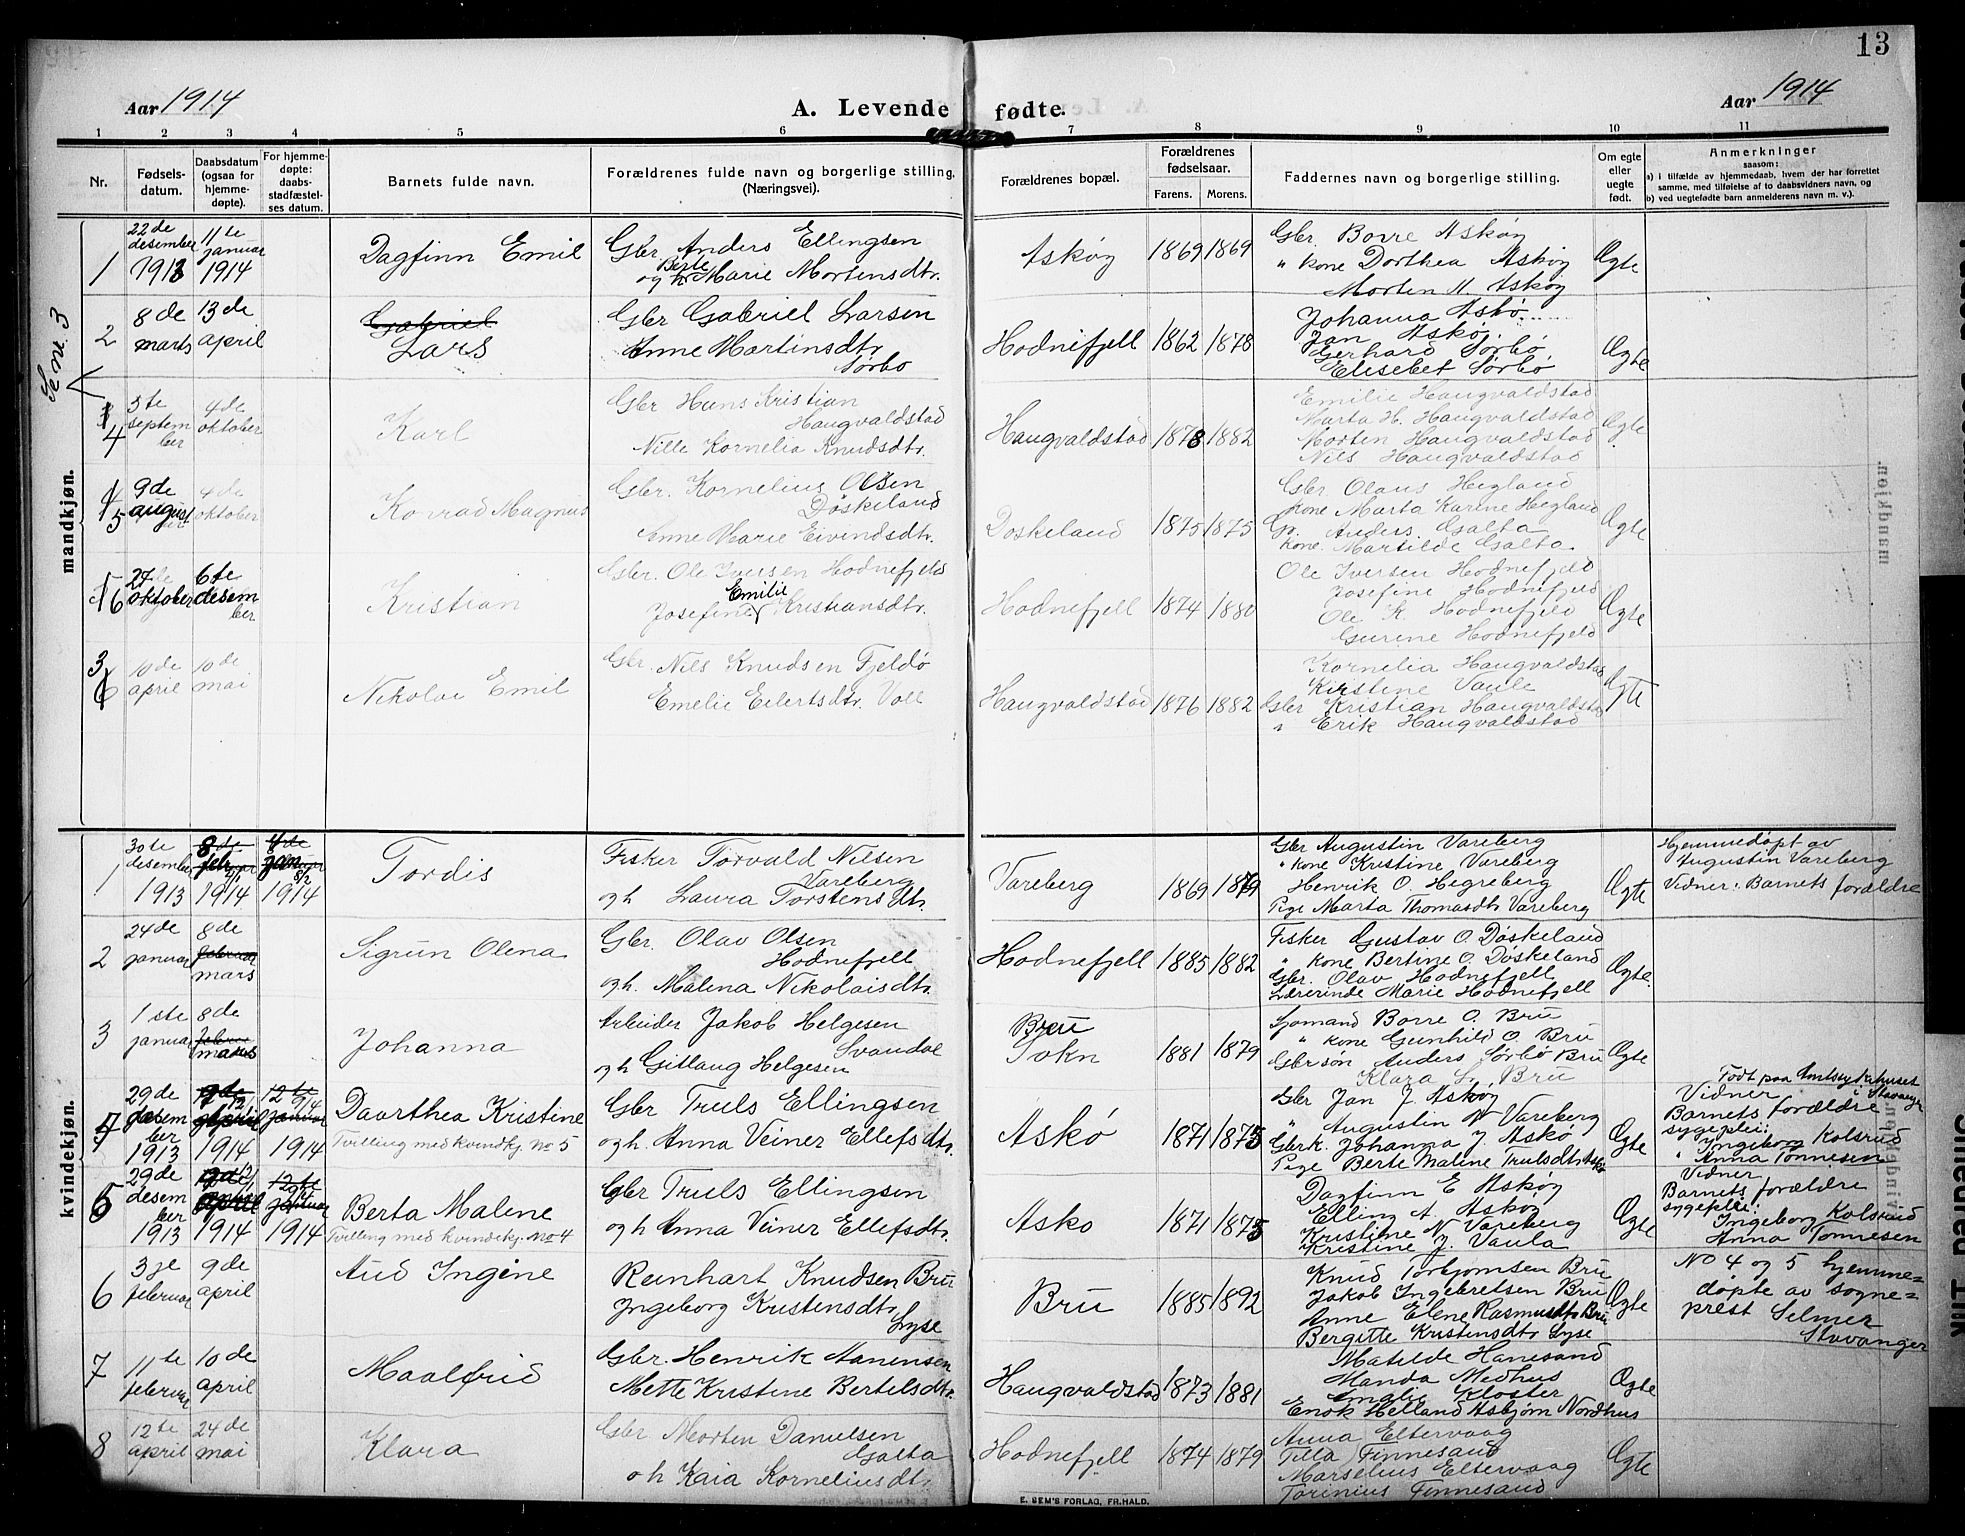 13
Aar 1914
A. Levende fødte.
Aar 1914
1 2 3 4 5 6 7 8 9 10 11
Nr.
Fødsels-
datum.
Daabsdatum
(ogsaa for
hjemme-
døpte).
For hjemme-
døpte:
daabs-
stadfæstel-
ses datum.
Barnets fulde navn.
Forældrenes fulde navn og borgerlige stilling.
(Næringsvei).
Forældrenes bopæl.
Forældrenes
fødselsaar.
Farens. Morens.
Faddernes navn og borgerlige stilling.
Om egte
eller
uegte
født.
Anmerkninger
saasom:
a) i tilfælde av hjemmedaab, hvem der har forrettet
samme, med tilføielse af to daabsvidners navn, og
b) ved uegtefødte barn anmelderens navn m. v.).
mandkjøn.
Se nr. 3
1
22de
desember
1913
11te
januar
1914
Dagfinn Emil
Gbr. Anders Ellingsen
Berte
og h. Marie Mortensdtr.
Askøy
1869 1869
Gbr. Borre Askøy
" kone Dorthea Askøy
Morten M. Askøy
Ægte
2
8de
marts
13de
april
Gabriel
Lars
Gbr Gabriel Larsen
Anne Martinsdtr
Sørbø
Hodnefjell
1862 1878
Johanna Askø
Jan Askøy.
Gerhard Sørbø.
Elisebet Sørbø
Ægte
4
3te
septem
ber
4de
oktober
Karl
Gbr Hans Kristian
Haugvaldstad
Nille Kornelia Knudsdtr.
Haugvaldstad
1878 1882
Emilie Haugvaldstad
Marta H. Haugvaldstad
Morten Haugvaldstad
Nils Haugvaldstad
Ægte
5
9de
august
4de
oktober
Konrad Magnus
Gbr. Kornelius Olsen
Døskeland
Anne Marie Eivindsdtr.
Doskeland
1875 1875
Gbr Olaus Hegland
Kone Marta Karine Hegland
Gr. Anders Galta
kone Martilde Galta
Ægte
6
27de
oktober
6te
desem
ber
Kristian
Gbr. Ole Iversen Hodnefjeld
Emilie
Josefine Kristiansdtr.
Hodnefjell
1874 1880
Ole Iversen Hodnefjeld
Josefine Hodnefjeld
Ole K. Hodnefjeld
Gurine Hodnefjeld
Ægte
3
10de
april
10de
mai
Nikolai Emil
Gbr. Nils Knudsen Fjeldø
Emelie Eilertsdtr. Voll
Haugvaldstad
1876 1882
Kornelia Haugvaldstad
Kirstine Vaule
Gbr Kristian Haugvaldstad
" Erik Haugvaldstad
Ægte
kvindekjøn.
1
30te
desember
1913
8de
febr
1914
januar
8/2
1914
Tordis
Fisker Torvald Nilsen
Vareberg
og h Laura Torstensdtr.
Vareberg
1869 1879
Gbr Augustin Vareberg
" kone Kristine Vareberg
Henrik O. Hegreberg
Pige Marta Thomasdtr Vareberg
Ægte
Hjemmedøpt av
Augustin Vareberg
Vidner: Barnets forældre
2
24de
januar
8de
februar
mars
Sigrun Olena
Gbr. Olav Olsen
Hodnefjell
og h. Malena Nikolaisdtr.
Hodnefjell
1885 1882
Fisker Gustav O. Døskeland
" kone Bertine O. Døskeland
Gbr. Olav Hodnefjell
Lærerinde Marie Hodnefjell
Ægte.
3
1ste
januar
8de
mars
Johanna
Arbeider Jakob Helgesen
Svandal
og h Gitlaug Helgesen
Bru
Sokn
1881 1879
Sjomand Borre O. Bru
" kone Gunhild O. Bru
Gbr søn Anders Sørbø Bru
Klara S. Bru
Ægte
4
29de
desem
ber
1913
april
1914
12te
januar
1914
Daarthea Kristine
Tvilling med kvindkj. no 5
Gbr Truls Ellingsen
og h. Anna Veiner Ellefsdtr.
Askø
1871 1875
Gbr Jan J. Askøy
" Augustin N. Vareberg
Gbrk. Johanna J. Askø
Pige Berte Malene Trulsdtr Askø
Ægte
Født paa Amtssykehuset
i Stavanger
Vidner
Barnets forældre
sygeplei:
Ingeborg Kolsrud
" Anna Tønnesen
5
29de
desem
ber
1913
april
1914
12te
januar
1914
Berta Malene
Tvilling med kvindekj. no 4
Gbr Truls Ellingsen
og h Anna Veiner Ellefsdtr.
Asko
1871 1875
Dagfinn E Askøy
Elling A. Askøy
Kristine N. Vareberg
Kristine J. Vaula
Ægte
Vidner
Barnets forældre
sygeplei:
Ingeborg Kolsrud
Anna Tønnesen
6
3je
februar
9de
april
Aud Ingine
Reinhart Knudsen Bru
Ingeborg Kristensdtr.
Lyse
Bru
1885 1892
Knud Torbjornsen Bru
Jakob Ingebretsen Bru
Anne Elene Rasmusdtr Bru
Bergitte Kristensdtr Lyse
Ægte
No 4 og 5 hjemme=
døpte av sogne=
prest Selmer
Stavanger
7
11te
februar
10de
april
Maalfrid
Gbr. Henrik Aanensen
Mette Kristene Bertelsdtr.
Haugvaldstad
1873 1881
Matilde Hanesand
Handa Medhus
Amalie Kloster
Enok Helland Asbjørn Nordhus
Ægte
8
12te
april
24de
mai
Klara
Gbr Morten Danielsen
Galta
o h Kaia Korneliusdtr
Hodnefjell
1874 1879
Anna Eltervaag
Tilla Finnesand
Marselius Eltervaag
Torinius Finnesand
Ægte
E. SEM'S FORLAG, FR.HALD.